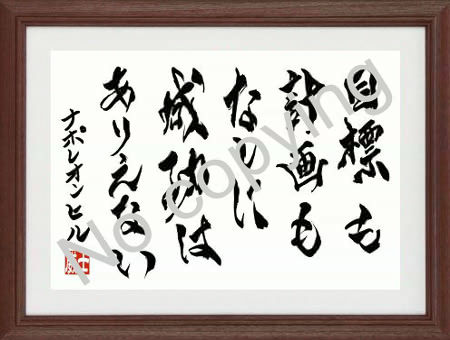 目標も
計画も
なしに
は
ありえない
ナポレオンヒル
No copying